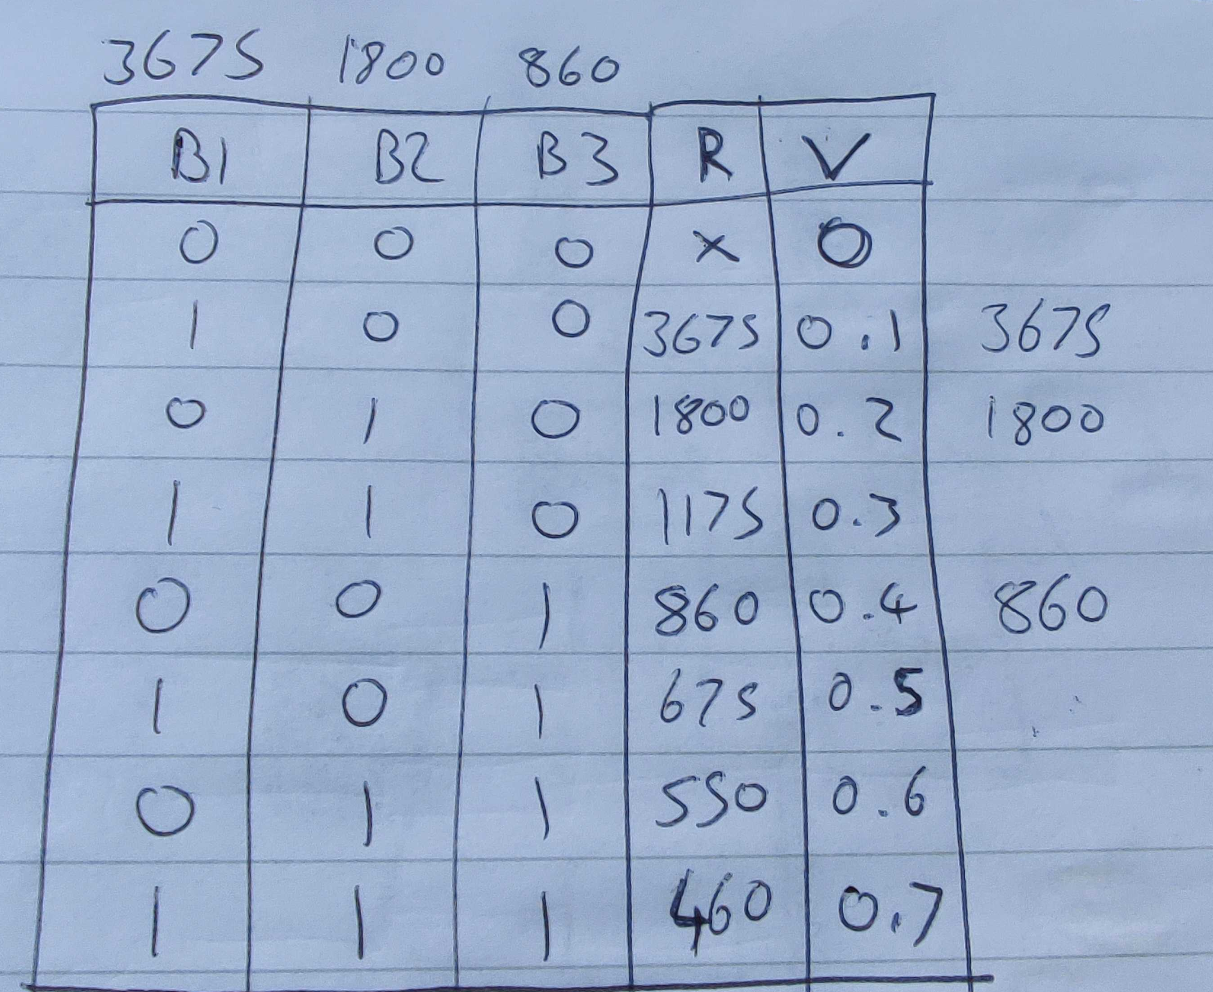 3675 1800 860
B1 B2 B3 R V
0 0 0 x 0
1 0 0 3675 0.1 3675
0 1 0 1800 0.2 1800
1 1 0 1175 0.3
0 0 1 860 0.4 860
1 0 1 675 0.5
0 1 1 550 0.6
1 1 1 460 0.7